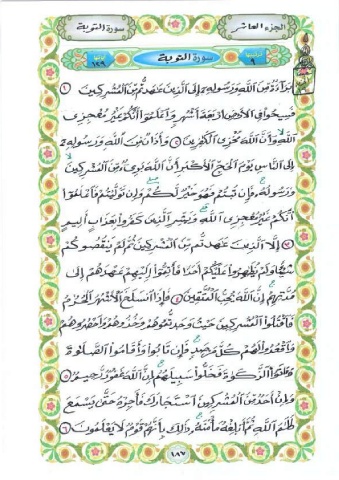 الجزء العاشر
سورة التوبة
سورة التوبة
بَرَآءَةٌ مِّنَ ٱللَّهِ وَرَسُولِهِۦٓ إِلَى ٱلَّذِينَ عَٰهَدتُّم مِّنَ ٱلْمُشْرِكِينَ ١
فَسِيحُوا۟ فِى ٱلْأَرْضِ أَرْبَعَةَ أَشْهُرٍ وَٱعْلَمُوٓا۟ أَنَّكُمْ غَيْرُ مُعْجِزِى
ٱللَّهِ وَأَنَّ ٱللَّهَ مُخْزِى ٱلْكَٰفِرِينَ ٢ وَأَذَٰنٌ مِّنَ ٱللَّهِ وَرَسُولِهِۦٓ
إِلَى ٱلنَّاسِ يَوْمَ ٱلْحَجِّ ٱلْأَكْبَرِ أَنَّ ٱللَّهَ بَرِىٓءٌ مِّنَ ٱلْمُشْرِكِينَ
وَرَسُولُهُۥ فَإِن تُبْتُمْ فَهُوَ خَيْرٌ لَّكُمْ وَإِن تَوَلَّيْتُمْ فَٱعْلَمُوٓا۟
أَنَّكُمْ غَيْرُ مُعْجِزِى ٱللَّهِ وَبَشِّرِ ٱلَّذِينَ كَفَرُوا۟ بِعَذَابٍ أَلِيمٍ
٣ إِلَّا ٱلَّذِينَ عَٰهَدتُّم مِّنَ ٱلْمُشْرِكِينَ ثُمَّ لَمْ يَنقُصُوكُمْ
شَيْـًٔا وَلَمْ يُظَٰهِرُوا۟ عَلَيْكُمْ أَحَدًا فَأَتِمُّوٓا۟ إِلَيْهِمْ عَهْدَهُمْ إِلَىٰ
مُدَّتِهِمْ إِنَّ ٱللَّهَ يُحِبُّ ٱلْمُتَّقِينَ ٤ فَإِذَا ٱنسَلَخَ ٱلْأَشْهُرُ ٱلْحُرُمُ
فَٱقْتُلُوا۟ ٱلْمُشْرِكِينَ حَيْثُ وَجَدتُّمُوهُمْ وَخُذُوهُمْ وَٱحْصُرُوهُمْ
وَٱقْعُدُوا۟ لَهُمْ كُلَّ مَرْصَدٍ فَإِن تَابُوا۟ وَأَقَامُوا۟ ٱلصَّلَوٰةَ
وَءَاتَوُا۟ ٱلزَّكَوٰةَ فَخَلُّوا۟ سَبِيلَهُمْ إِنَّ ٱللَّهَ غَفُورٌ رَّحِيمٌ ٥
وَإِنْ أَحَدٌ مِّنَ ٱلْمُشْرِكِينَ ٱسْتَجَارَكَ فَأَجِرْهُ حَتَّىٰ يَسْمَعَ
كَلَٰمَ ٱللَّهِ ثُمَّ أَبْلِغْهُ مَأْمَنَهُۥ ذَٰلِكَ بِأَنَّهُمْ قَوْمٌ لَّا يَعْلَمُونَ ٦
١٨٧